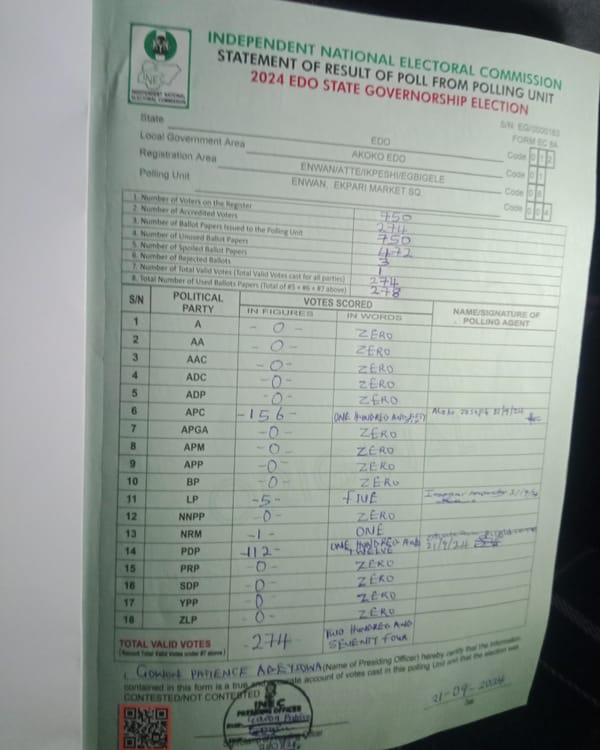 INDEPENDENT NATIONAL ELECTORAL COMMISSION
STATEMENT OF RESULT OF POLL FROM POLLING UNIT
2024 EDO STATE GOVERNORSHIP ELECTION
INEC
INDEPENDENT NATIONAL
ELECTORAL COMMISSION
S/N: EG/0000163
FORM EC 8A
State EDO Code 0 1 2
Local Government Area AKOKO EDO Code 0 1
Registration Area ENWAN/ATTE/IKPESHI/EGBIGELE Code 0 8
Polling Unit ENWAN, EKPARI MARKET SQ. Code 0 0 4
1. Number of Voters on the Register 750
2. Number of Accredited Voters 274
3. Number of Ballot Papers Issued to the Polling Unit 750
4. Number of Unused Ballot Papers 472
5. Number of Spoiled Ballot Papers 3
6. Number of Rejected Ballots 1
7. Number of Total Valid Votes (Total Valid Votes cast for all parties) 274
8. Total Number of Used Ballots Papers (Total of #5 + #6 + #7 above) 278
S/N POLITICAL PARTY VOTES SCORED NAME/SIGNATURE OF POLLING AGENT
IN FIGURES IN WORDS
1 A -0- ZERO
2 AA -0- ZERO
3 AAC -0- ZERO
4 ADC -0- ZERO
5 ADP -0- ZERO
6 APC -156- ONE HUNDRED AND
7 APGA -0- ZERO
8 APM -0- ZERO
9 APP -0- ZERO
10 BP -0- ZERO
11 LP -5- FIVE
12 NNPP -0- ZERO
13 NRM -1- ONE
14 PDP -112- ONE HUNDRED AND TWELVE 21/9/24
15 PRP -0- ZERO
16 SDP -0- ZERO
17 YPP -0- ZERO
18 ZLP -0- ZERO
TOTAL VALID VOTES -274- TWO HUNDRED AND SEVENTY FOUR
I, PATIENCE (Name of Presiding Officer) hereby certify that the information
contained in this form is a true and account of votes cast in this polling Unit and that the election was
CONTESTED/NOT CONTESTED
INEC
PRESIDING OFFICER
21-09-2024
Date